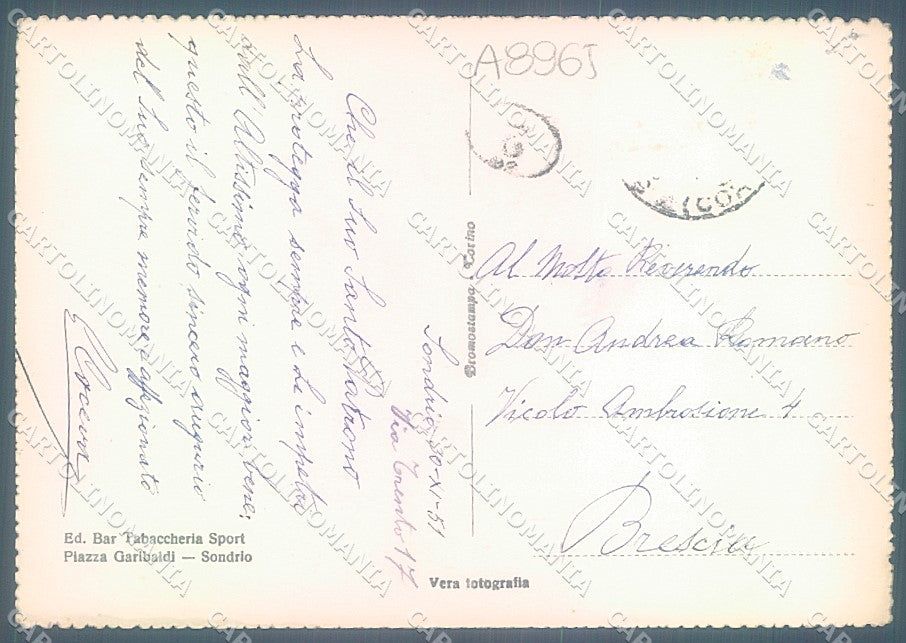 A896J
Sondrio, 30-XI-51
Via Trento 17
Che il Suo Santo Patrono
La protegga sempre e Le impetri
dall'Altissimo ogni maggior bene:
questo il fervido sincero augurio
del Suo sempre memore affezionato
Al Molto Reverendo
Don Andrea Romano
Vicolo Ambrosione 4
Brescia
Bromostampa - Torino
Ed. Bar Tabaccheria Sport
Piazza Garibaldi — Sondrio
Vera fotografia
CARTOLINOMANIA